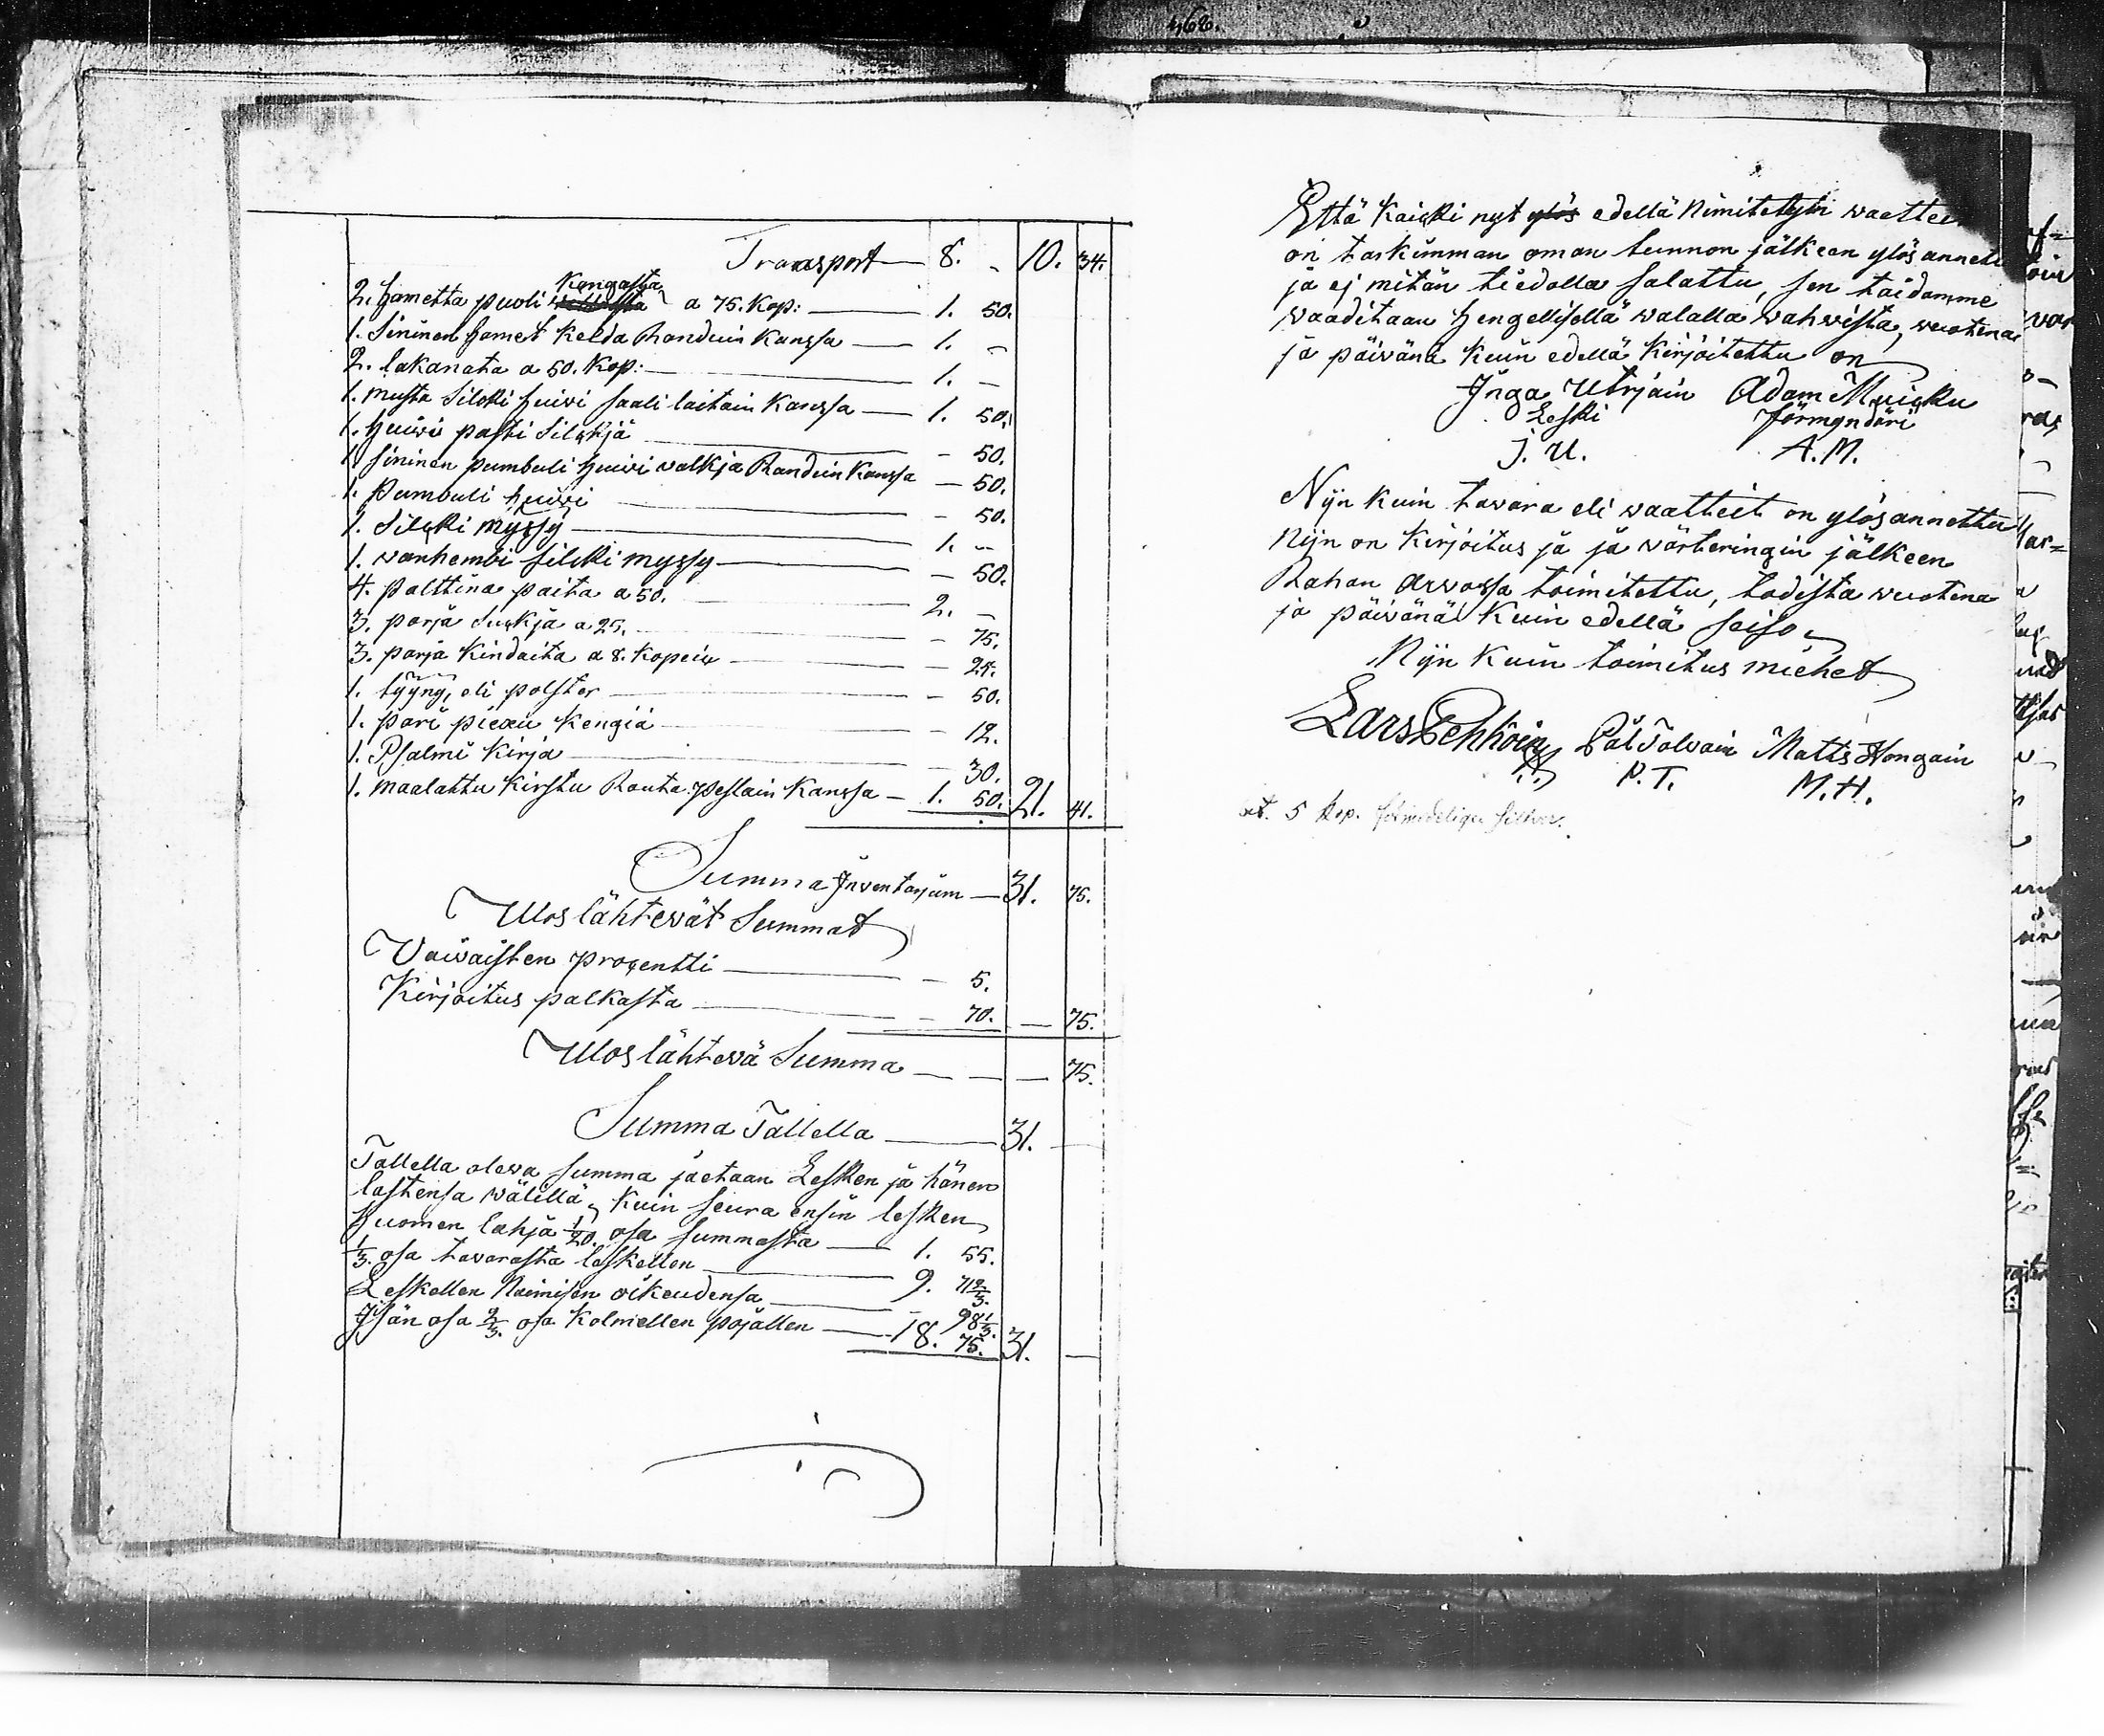 468.
Transport — 8. - 10. 34.
2. hametta puoli Kangasta a 75. Kop: — 1. 50.
1. Sininen hamet Kelda Randuin Kanssa — 1. -
2. lakanata a 50. Kop: — 1. -
1. musta Silcki huivi saali laitain Kanssa — 1. 50.
1. huivi pasti Silckjä — - 50.
1. sininen pumbuli huivi valkja Randuin Kanssa — 50.
1. Pumbuli huivi — - 50.
1. Silcki myssy — 1. -
1. wanhembi silcki myssy — - 50.
4. palttina paita a 50. — 2. -
3. parja Suckja a 25. — - 75.
3. parja Kindaita a 8. Kopeix — - 25.
1. tyyny, eli polster — - 50.
1. pari piexu Kengiä — - 12.
1. Psalmi Kirja — - 30.
1. maalattu Kirstu Rauta peslain Kanssa — 1. 50. 21. 41.
Summa Inventarjum — 31. 75.
Ulos lähtewät Summat
Waiwaisten procentti — - 5.
Kirjoitus palkasta — - 70. — 75.
Ulos lähtewä Summa — — — 75.
Summa Tallella — 31. —
Tallella olewa summa jaetaan Lesken ja hänen
lastensa wälillä, Kuin seura ensin lesken
huomen lahja 1/20. osa summasta — 1. 55.
1/3. osa tavarasta leskellen — 9. 71 2/3.
Leskellen Naimisen oikeudensa — - 98 1/3.
Isän osa 2/3. osa Kolmellen pojallen — 18. 75. 31. —
Että Kaicki nyt ylös edellä Nimitetyt waetteet
on tarkimman oman tunnon jälkeen ylösannettu
ja ej mitän tiedolla salattu, sen taidamme
waaditaan hengellisellä walalla wahwista, wuotena
ja päiwänä Kuin edellä Kirjoitettu on
Inga Utrjain Adam Muicku
Leski förmyndäri
J. U. A. M.
Nijn Kuin tawara eli waatteet on ylösannettu
Nijn on Kirjoitus ja ja wärteringin jälkeen
Rahan Arwossa toimitettu, todista wuotena
ja päiwänä Kuin edellä seiso
Nijn Kuin toimitus miehet
Lars Pål Tolwain Matts Hongain
P. T. M. H.
5 kop. silfwer.